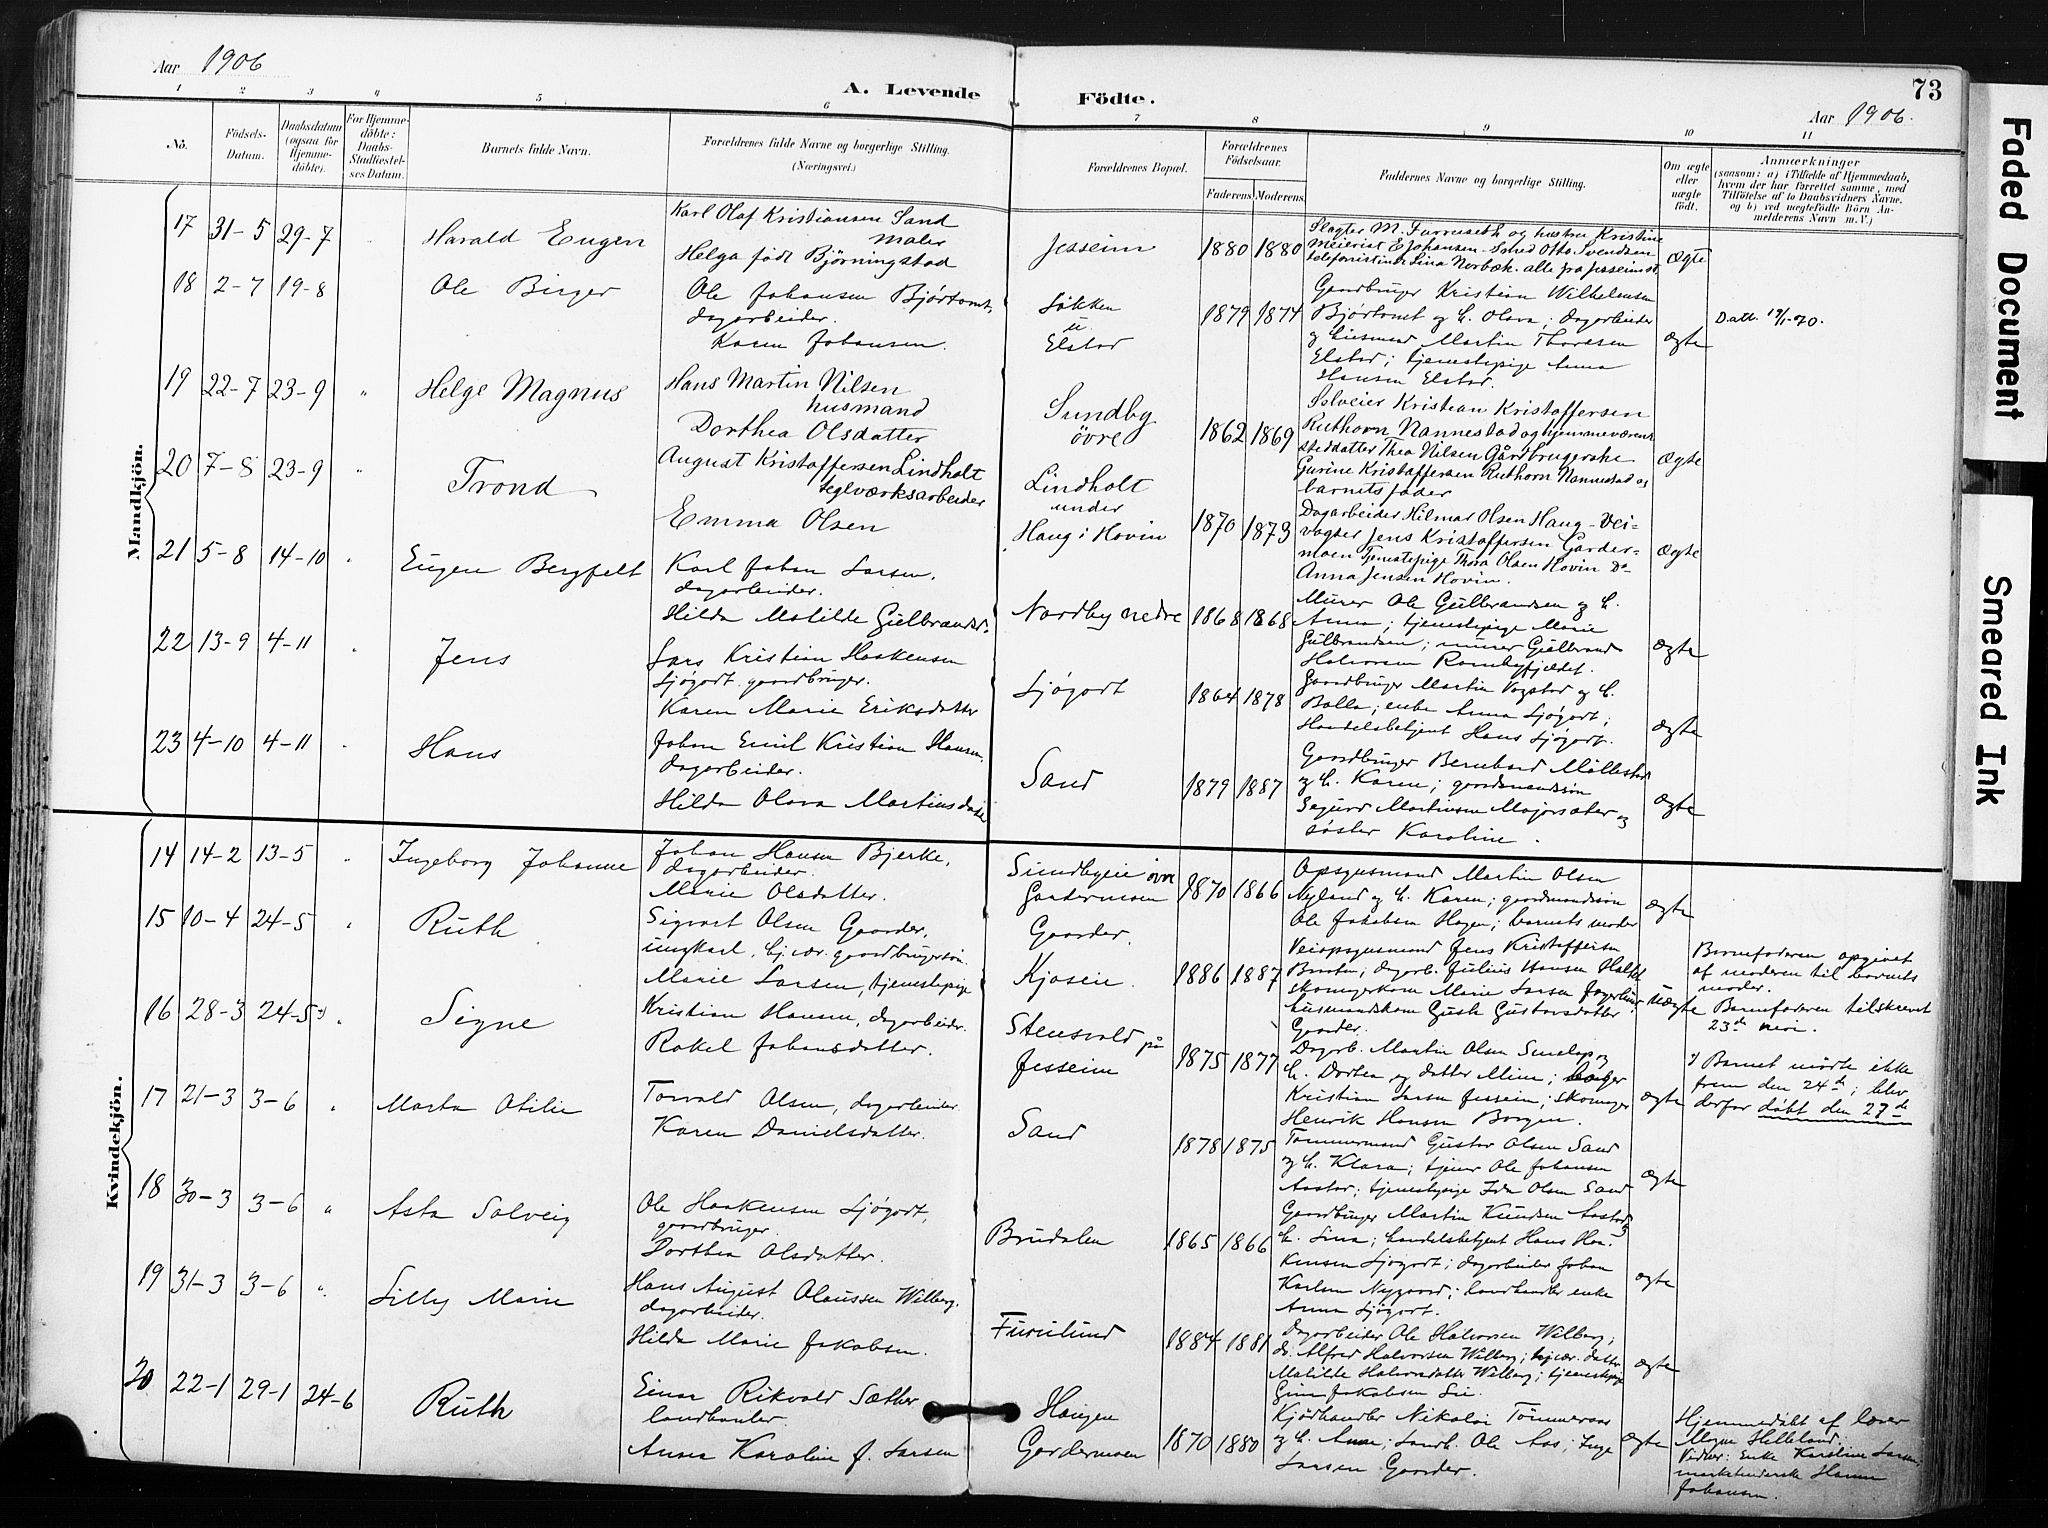 Aar 1906
A. Levende Födte.
73
Aar 1906.
1 2 3 4 5 6 7 8 9 10 11
No.
Födsels-Datum.
Daabsdatum (ogsaa for Hjemmedöbte).
For Hjemmedöbte: Daabs-Stadfæstelses Datum.
Barnets fulde Navn.
Forældrenes fulde Navne og borgerlige Stilling. (Næringsvei.)
Forældrenes Bopæl.
Forældrenes Födselsaar.
Faderens Moderens
Faddernes Navne og borgerlige Stilling.
Om ægte eller uægte födt.
Anmærkninger
(saasom: a) i Tilfælde af Hjemmedaab, hvem der har forrettet samme, med Tilföielse af to Daabsvidners Navne, og b) ved uægtefödte Börn Anmelderens Navn m. V.)
Mandkjön.
17 31-5 29-7 Harald Eugen
Karl Olaf Kristiansen Sand
maler
Helga født Bjørningstad
Jesseim 1880 1880
Slagter M. Furuseth og hustru Kristine
Meierist E Johansen. Smed Otto Svendsen
telefonistinde Lina Norbæk. alle fra Jesseim st.
ægte
18 2-7 19-8 Ole Birger
Ole Johansen Bjørtomt,
dagarbeider.
Karen Johansen.
Løkken
u
Elstad
1879 1874
Gaardbruger Kristian Wilhelmsen
Bjørtomt og h. Olava; dagarbeider
og husmand Martin Thoresen
Elstad; tjenestepige Anna
Hansen Elstad.
ægte
Datt. 19/1-70.
19 22-7 23-9 " Helge Magnus
Hans Martin Nilsen
husmand
Dorthea Olsdatter
Sundby
øvre
1862 1869
Selveier Kristian Kristoffersen
Ruthorn Nannestad og hjemmeværende
steddatter Thea Nilsen Gårdbrugerske
Gurine Kristoffersen Ruthorn Nannestad og
barnets fader
ægte
20 7-8 23-9 " Trond
August Kristoffersen Lindholt
teglværksarbeider
Emma Olsen
Lindholt
under
Haug i Hovin
1870 1873
Dagarbeider Hilmar Olsen Haug - Vei-
vogter Jens Kristoffersen Garder-
moen Tjenestepige Thora Olsen Hovin Do
Anna Jensen Hovin.
ægte
21 5-8 14-10 " Eugen Bergfelt
Karl Johan Larsen,
dagarbeider.
Hilda Matilde Gulbrandsd.
Nordby nedre 1868 1868
Murer Ole Gulbrandsen og h.
Anna; tjenestepige Marie
Gulbrandsen; murer Gulbrand
Halvorsen Rambyfjeldet.
ægte
22 13-9 4-11 " Jens
Lars Kristian Haakensen
Sjøgort gaardbruger.
Karen Marie Eriksdatter
Sjøgort 1864 1878
Gaardbruger Martin Vogstad og h.
Bolla; enke Anna Sjøgort;
Handelsbetjent Hans Sjøgort.
ægte
23 4-10 4-11 " Hans
Johan Emil Kristian Hansen,
dagarbeider.
Hilda Olava Martinsdatter
Sand 1879 1887
Gaardbruger Bernhard Møllestad
og h. Karen; gaardmandssøn
Sigurd Martinsen Majorsæter og
søster Karoline.
ægte
Kvindekjön.
14 14-2 13-5 " Ingeborg Johanne
Johan Hansen Bjerke,
dagarbeider.
Marie Olsdatter.
Sundbyeie øvre
Gardermoen
1870 1866
Opsynsmand Martin Olsen
Nyland og h. Karen; gaardmandssøn
Ole Jakobsen Hagen; barnets moder
ægte
15 10-4 24-5 " Ruth
Sigvart Olsen Gaarder,
ungkarl, hj.vær. gaardbrugersøn.
Marie Larsen, tjenestepige
Gaarder.
Kjosein.
1886 1887
Veiopsynsmand Jens Kristoffersen
Braaten; dagarb. Julius Hansen
skomagerkone Marie Larsen Fagerlund;
husmandskone Gusta Gustavsdatter
Gaarder.
uægte
Barnefaderen opgivet
af moderen til barnets
moder.
Barnefaderen tilskrevet
23de mai.
16 28-3 24-5 1) " Signe
Kristian Hansen, dagarbeider.
Rakel Johansdatter.
Stensvold på
Jesseim
1875 1877
Dagarb. Martin Olsen Smelap og
h. Dortea og datter Mina; bager
Kristian Larsen Jesseim; skomager
Henrik Hansen Borgen.
ægte
1) Barnet mødte ikke
frem den 24de; blev
derfor døbt den 27de
17 21-3 3-6 " Marta Otilie
Torvald Olsen, dagarbeider.
Karen Danielsdatter.
Sand 1878 1875
Tømmermand Gustav Olsen Sand
og h. Klara; tjener Ole Johansen
Aastad; tjenestepige Ida Olsen Sand
ægte
18 30-3 3-6 " Asta Solveig
Ole Haakensen Sjøgort,
gaardbruger.
Dorthea Olsdatter.
Brudalen 1865 1866
Gaardbruger Martin Knudsen Aastad og
h. Lina; handelsbetjent Hans Haa-
kensen Sjøgort; dagarbeider Johan
Karlsen Nygaard; landhandler enke
Anna Sjøgort.
ægte
19 31-3 3-6 " Lilly Marie
Hans August Olaussen Wilberg,
dagarbeider.
Hilda Marie Jakobsen.
Furulund 1884 1881
Dagarbeider Ole Halvorsen Wilberg;
do. Alfred Halvorsen Wilberg; hj.vær. datter
Matilde Halvorsdatter Wilberg; tjenestepige
Gina Jakobsen Lie.
ægte
20 22-1 29-1 24-6 Ruth
Einar Rikvald Sæther
landhandler.
Anna Karoline f. Larsen
Haugen
Gardermoen
1870 1880
Kjødhandler Nikolai Tømmeraas
og h. Anna; landh. Ole Aas; Inga
Larsen Gaarder.
ægte
Hjemmedøbt af lærer
Helleland.
Vidner: Enke Karoline Larsen,
marketenderske Hanna
Johansen.
Faded Document
Smeared Ink